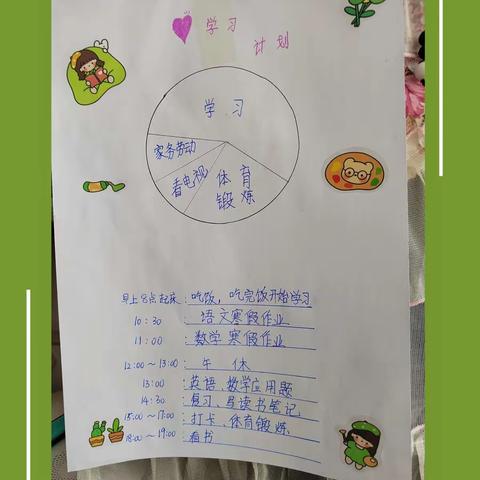 学习
计划
学习
家务劳动
看电视
体育
锻炼
早上8点起床:吃饭,吃完饭开始学习
10:30 :语文寒假作业
11:00 :数学寒假作业
12:00~13:00:午休
13:00 :英语、数学应用题
14:30 :复习、写读书笔记
15:00~17:00:打卡、体育锻炼
18:00~19:00:看书